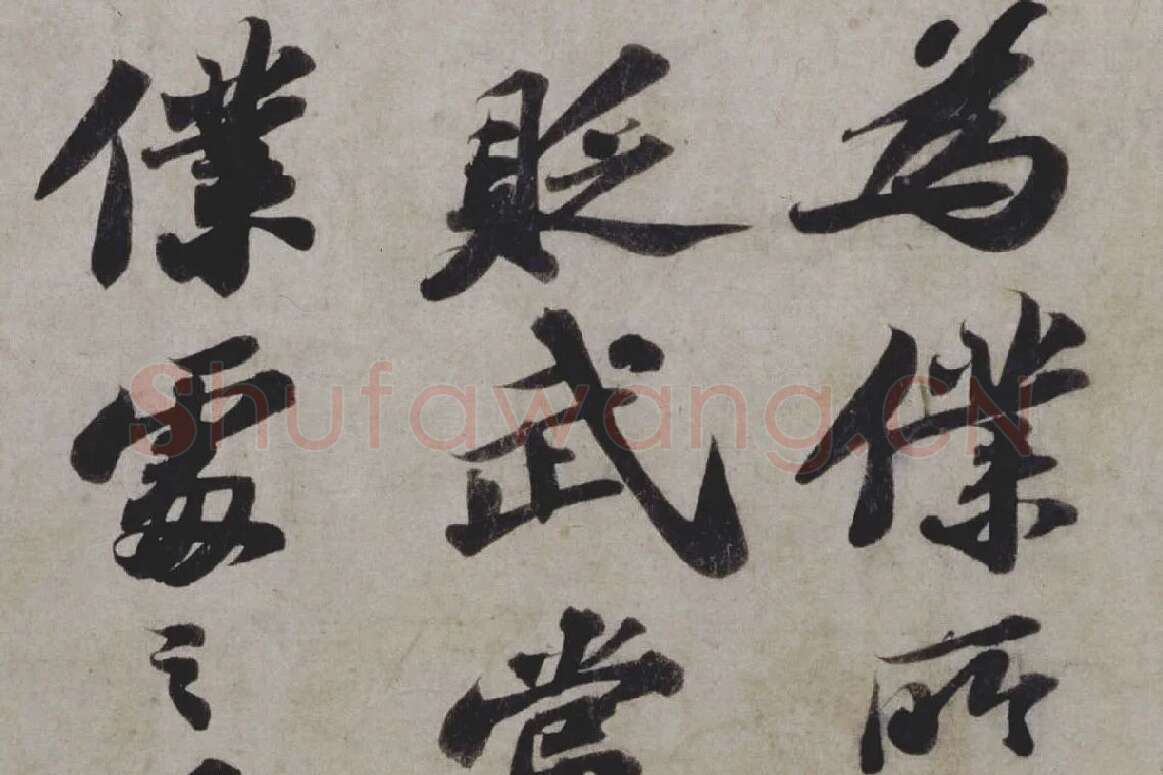 為僕所
貶武當
僕之
Shufawang.CN